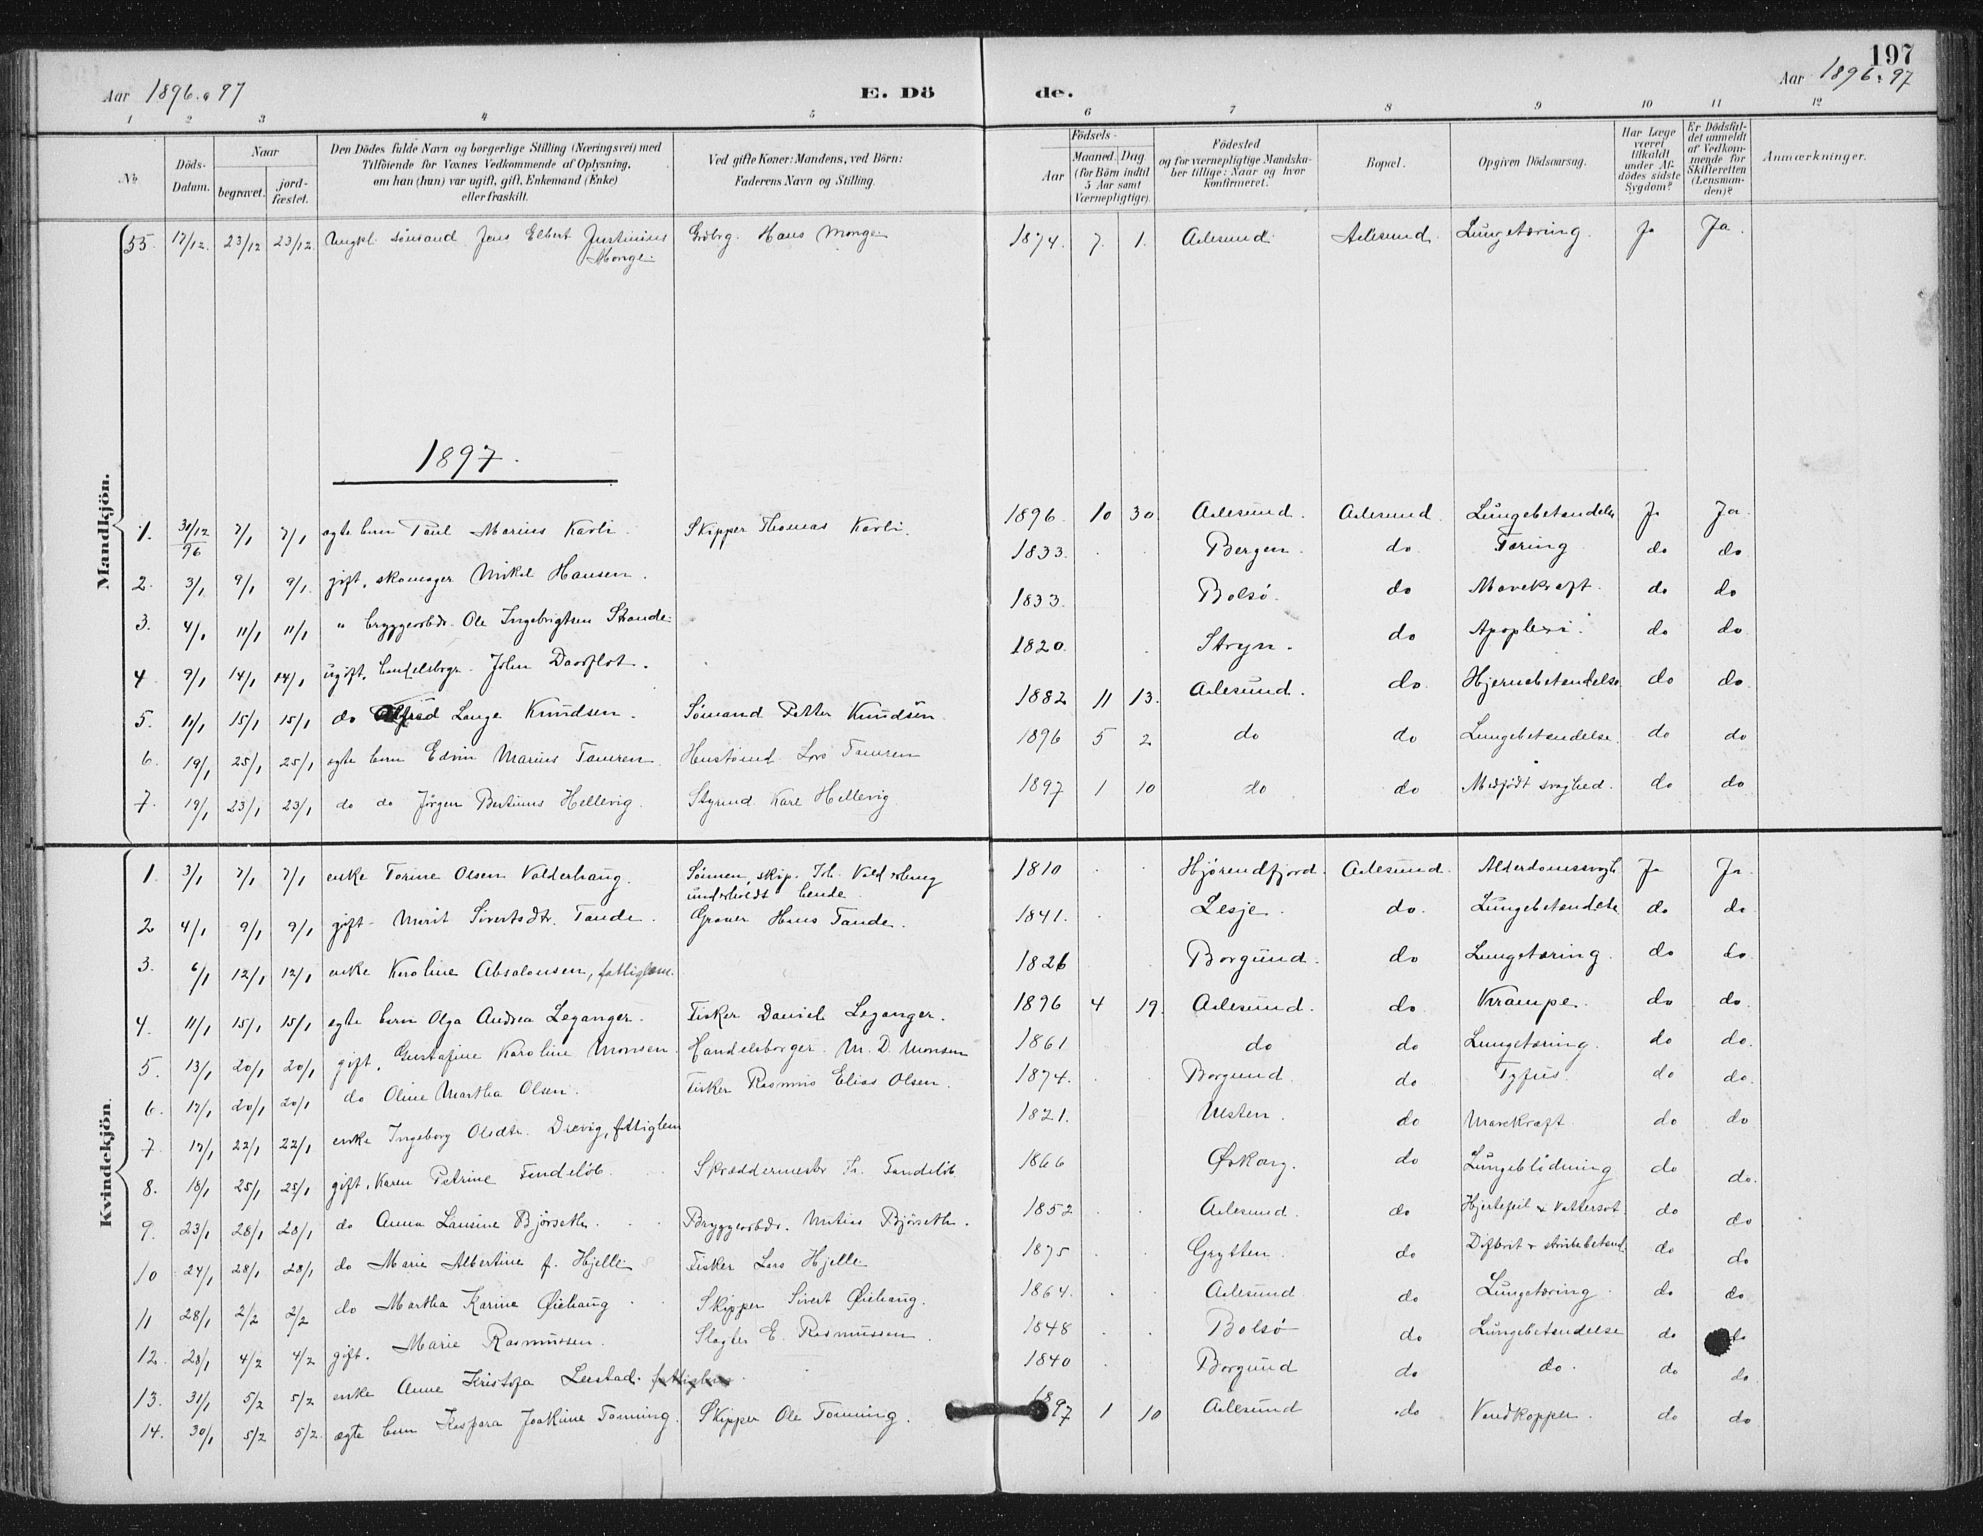 197
Aar 1896 & 97 E. Dö de. Aar 1896 & 97
1 2 3 4 5 6 7 8 9 10 11 12
No. Döds-Datum. Naar begravet. jord-fæstet. Den Dödes fulde Navn og borgerlige Stilling (Næringsvei) med Tilföiende for Voxnes Vedkommende af Oplysning, om han (hun) var ugift, gift, Enkemand (Enke) eller fraskilt. Ved gifte Koner: Mandens, ved Börn: Faderens Navn og Stilling. Födsels- Aar Maaned. Dag. (for Börn indtil 5 Aar samt Værnepligtige). Födested og for værnepligtige Mandskaber tillige: Naar og hvor konfirmeret. Bopæl. Opgiven Dödsaarsag. Har Læge været tilkaldt under Afdödes sidste Sygdom? Er Dödsfaldet anmeldt af Vedkommende for Skifteretten (Lensmanden)? Anmærkninger.
Mandkjön.
55. 17/12 23/12 23/12 Ungkl. sömand Jens Elbert Justinius Monge Hans Monge 1874. 7. 1. Aalesund Aalesund Lungetæring. Ja Ja.
1897.
1. 31/12 96 7/1 7/1 ægte barn Paul Marius Karli Skipper Thomas Karli 1896. 10 30 Aalesund. Aalesund. Lungebetændelse Ja Ja.
2. 3/1 9/1 9/1 gift, skomager Mikal Hansen. 1833. Bergen. do Tæring do do
3. 4/1 11/1 11/1 " bryggearbdr. Ole Ingebrigtsen Strande. 1833. Bolsö. do Mavekræft. do do
4 9/1 14/1 14/1 ugift, handelsbgr. John Daaflot. 1820. Stryn. do Apoplexi. do do
5. 11/1 15/1 15/1 do Alfred Lange Knudsen. Sömand Petter Knudsen 1882 11 13. Aalesund. do Hjernebetændelse do do
6. 19/1 25/1 25/1 ægte barn Edvin Marius Tamren Lars Tamren 1896 5 2 do do Lungebetændelse. do do
7. 19/1 23/1 23/1 do do Jörgen Bertinus Hellevig. Styrmd Karl Hellevig 1897 1 10 do do Medfödt svaghed. do do
Kvindekjön.
1. 3/1 7/1 7/1 enke Torine Olsen Valderhaug. Sönnen, skip. Joh. Valderhaug underholdt hende. 1810 Hjörendfjord. Aalesund. Alderdomssvagh. Ja Ja.
2 4/1 9/1 9/1 gift Marit Sivertsdtr. Tande. Graver Hans Tande. 1841. Lesje. do. Lungebetændelse do do
3. 6/1 12/1 12/1 enke Karoline Absalonsen, fattiglem. 1826 Borgund. do Lungetæring. do do
4. 11/1 15/1 15/1 ægte barn Olga Andrea Leganger. Fisker Daniel Leganger. 1896 4 19. Aalesund. do Krampe. do do.
5. 13/1 20/1 20/1 gift, Gustafine Karoline Monsen. Handelsborger. M. D. Monsen 1861 do do Lungetæring. do do.
6. 17/1 20/1 20/1 do Oline Martha Olsen. Fisker Rasmus Elias Olsen. 1874. Borgund. do Tyfus. do do.
7. 17/1 22/1 22/1 enke Ingeborg Olsdtr. Drevig, fattiglem 1821. Ulsten. do Mavekræft. do do
8. 18/1 25/1 25/1 gift, Karen Petrine Skræddermester 1866 do Lungeblödning do do.
9. 23/1 28/1 28/1 do Anna Lausine Björseth. Bryggearbdr. Matias Björseth. 1852 Aalesund. do Hjertefeil & Vattersot. do do
10 24/1 28/1 28/1 do Marie Albertine f. Hjelle Fisker Lars Hjelle 1875 Grytten. do Difterit & do do
11 28/1 2/2 2/2 do Martha Karine Öiehaug Skipper Sivert Öiehaug. 1864. Aalesund do Lungetæring. do do
12. 28/1 4/2 4/2 gift. Marie Rasmussen. Slagter E. Rasmussen 1848 Bolsö do Lungebetændelse do do
13. 31/1 5/2 5/2 enke Anne Kristofa Leestad. fattiglem 1840 Borgund do do. do do.
14. 30/1 5/2 5/2. ægte barn Kaspara Joakime Tonning. Skipper Ole Tonning. 1897 1 10 Aalesund do Vandkopper. do do